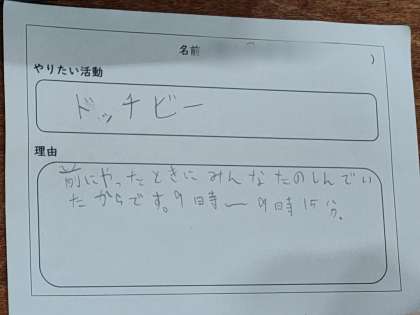 名前
)
やりたい活動
ドッチビー
理由
前にやったときにみんなたのしんでい
たからです。9時ー9時15分。